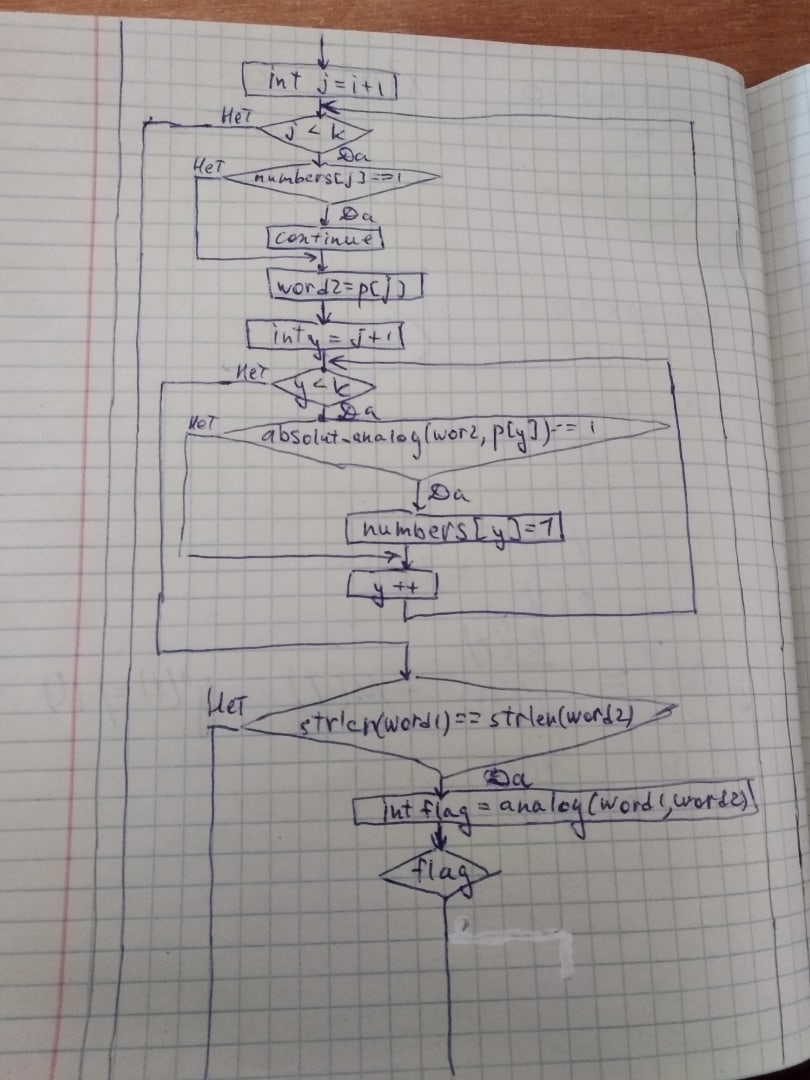 int j=i+1
Нет
j < k
Да
Нет
numbers[j]==1
Да
continue
word2=p[j]
int y = j+1
Нет
y < k
Да
Нет
absolut_analog(wor2, p[y])== 1
Да
numbers[y]=1
y ++
Нет
strlen(word1)== strlen(word2)
Да
int flag = analog(word1,word2)
flag